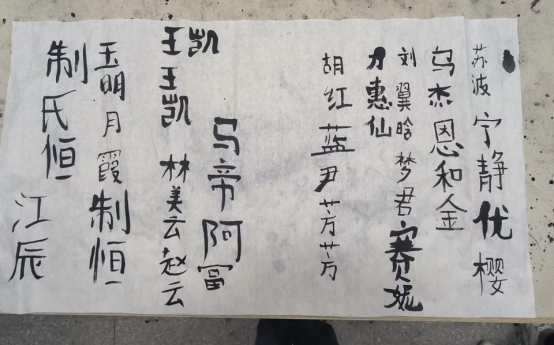 苏波宁静优樱
乌杰恩和金
刘翼晗梦君赛娜
刁惠仙
胡红蓝尹芳芳
马帝阿富
王凯
王凯林美云赵云
玉明月霞制恒
制氏恒
江辰